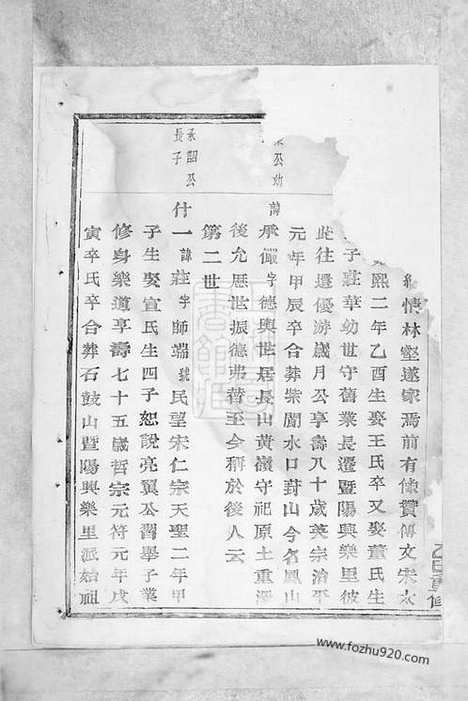 情林壑遂家焉前有像贊傳文宋太
熙二年乙酉生娶王氏卒又娶董氏生
子莊華幼世守舊業長遷暨陽興樂里彼
此往還優游歲月公享壽八十歲英宗治平
元年甲辰卒合葬紫閬水口葑山今名鳳山
公幼
諱承儼字德興世居長山黃嶺守祀原土重深
後允厯世振德弗替至今稱於後人云
第二世
承詔公
長子
什一諱莊字師端號民望宋仁宗天聖二年甲
子生娶宣氏生四子恕說亮翼公習舉子業
修身樂道享壽七十五歲哲宗元符元年戊
寅卒氏卒合葬石鼓山暨陽興樂里派始祖
www.fozhu920.com